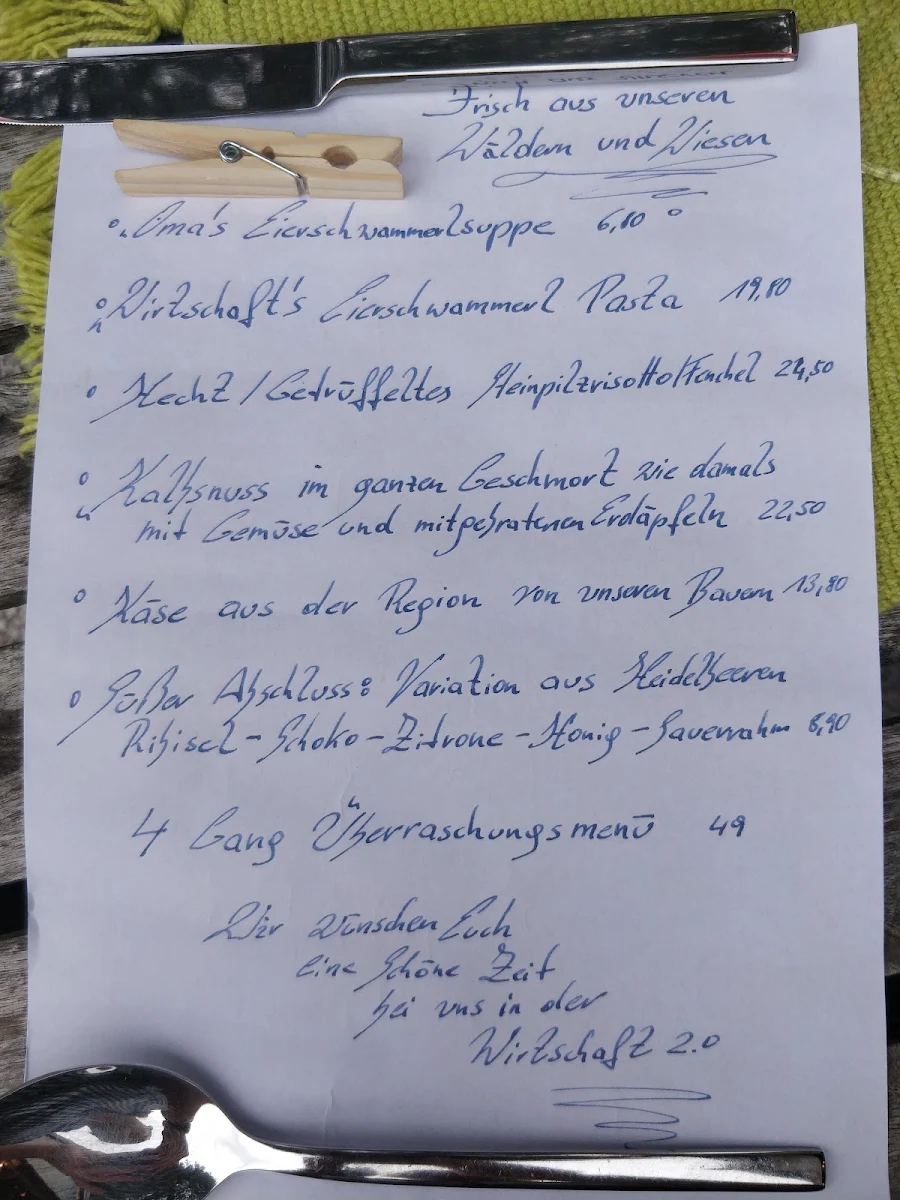 Frisch aus unseren
Wäldern und Wiesen
Oma's Eierschwammerlsuppe 6,80
Wirtschaft's Eierschwammerl Pasta 19,80
Hecht / Getrüffeltes Steinpilzrisotto/Fenchel 24,50
Kalbsnuss im ganzen Geschmort wie damals
mit Gemüse und mitgebratenen Erdäpfeln 22,50
Käse aus der Region von unseren Bauern 13,80
Süßer Abschluss: Variation aus Heidelbeeren
Ribisel - Schoko - Zitrone - Honig - Sauerrahm 8,90
4 Gang Überraschungsmenü 49
Wir wünschen Euch
eine Schöne Zeit
bei uns in der
Wirtschaft 2.0